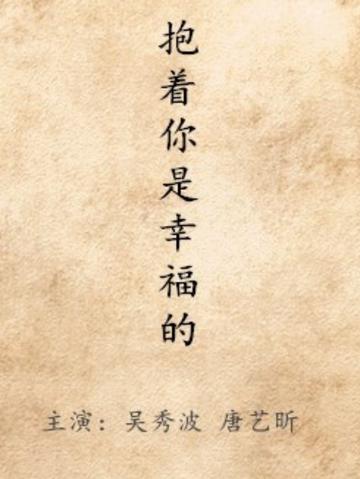 抱着你是幸福的
主演：吴秀波 唐艺昕